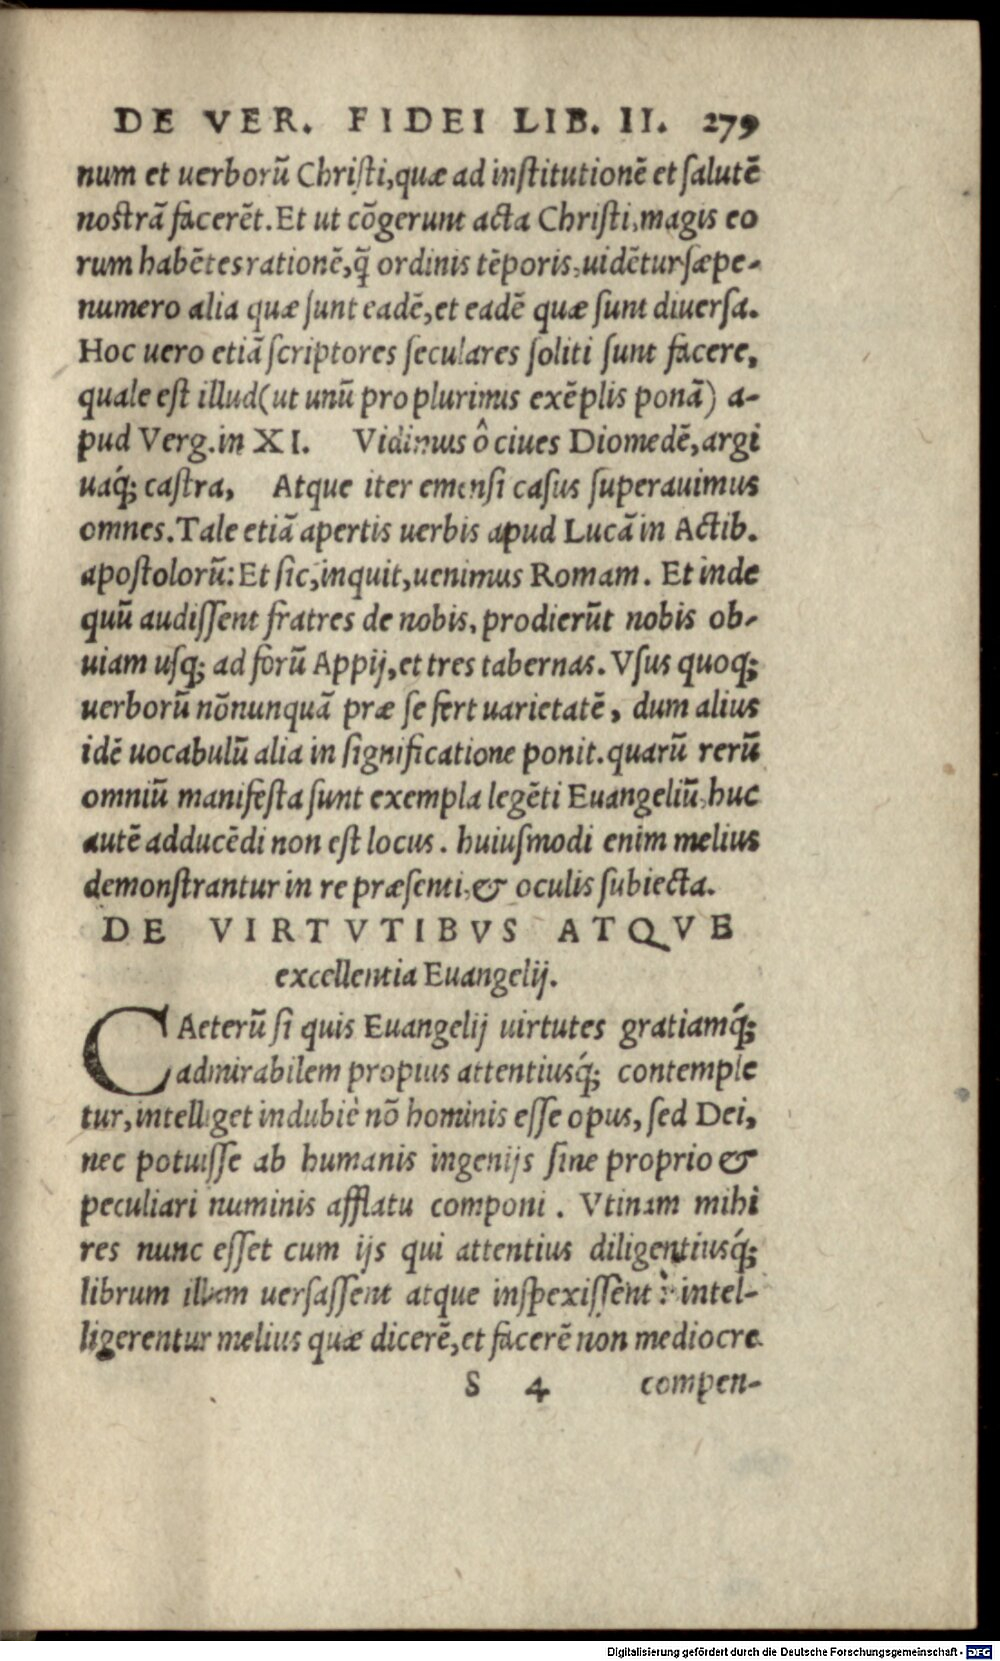 DE VER. FIDEI LIB. II. 279
num et uerborū Chriſti, quæ ad inſtitutionē et ſalutē
noſtrā facerēt. Et ut cōgerunt acta Chriſti, magis eo
rum habētes rationē, q̄ ordinis tēporis, uidētur ſæpe-
numero alia quæ ſunt eadē, et eadē quæ ſunt diuerſa.
Hoc uero etiā ſcriptores ſeculares ſoliti ſunt facere,
quale eſt illud (ut unū pro plurimis exēplis ponā) a-
pud Verg. in XI. Vidimus ô ciues Diomedē, argi
uaq́; caſtra, Atque iter emenſi caſus ſuperauimus
omnes. Tale etiā apertis uerbis apud Lucā in Actib.
apoſtolorū: Et ſic, inquit, uenimus Romam. Et inde
quū audiſſent fratres de nobis, prodierūt nobis ob-
uiam uſq; ad forū Appij, et tres tabernas. Vſus quoq;
uerborū nōnunquā præ ſe fert uarietatē, dum alius
idē uocabulū alia in ſignificatione ponit. quarū rerū
omniū manifeſta ſunt exempla legēti Euangeliū, huc
autē adducēdi non eſt locus. huiuſmodi enim melius
demonſtrantur in re præſenti, & oculis ſubiecta.
DE VIRTVTIBVS ATQVE
excellentia Euangelij.
CAeterū ſi quis Euangelij uirtutes gratiamq́;
admirabilem propius attentiusq́; contemple
tur, intelliget indubiè nō hominis eſſe opus, ſed Dei,
nec potuiſſe ab humanis ingenijs ſine proprio &
peculiari numinis afflatu componi. Vtinam mihi
res nunc eſſet cum ijs qui attentius diligentiusq́;
librum illum uerſaſſent atque inſpexiſſent: intel-
ligerentur melius quæ dicerē, et facerē non mediocre
S 4 compen-
Digitalisierung gefördert durch die Deutsche Forschungsgemeinschaft - DFG